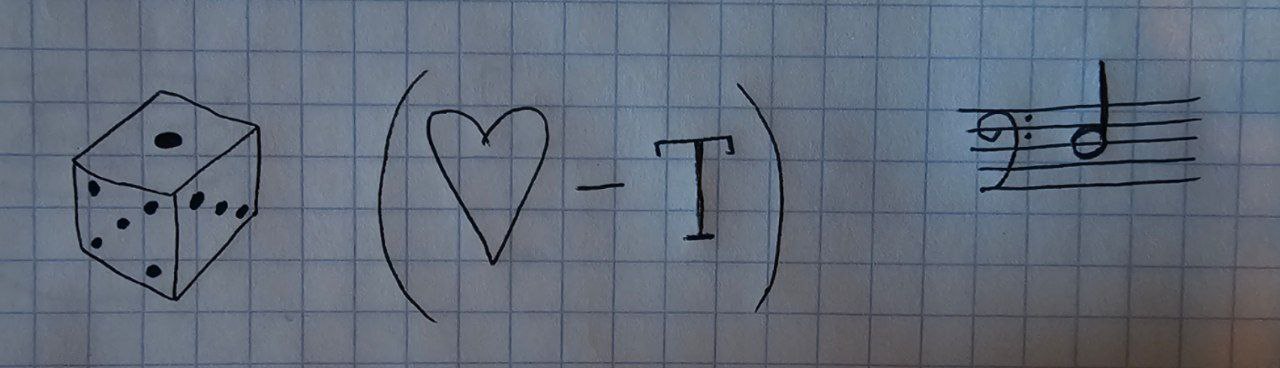 (♡ – T)